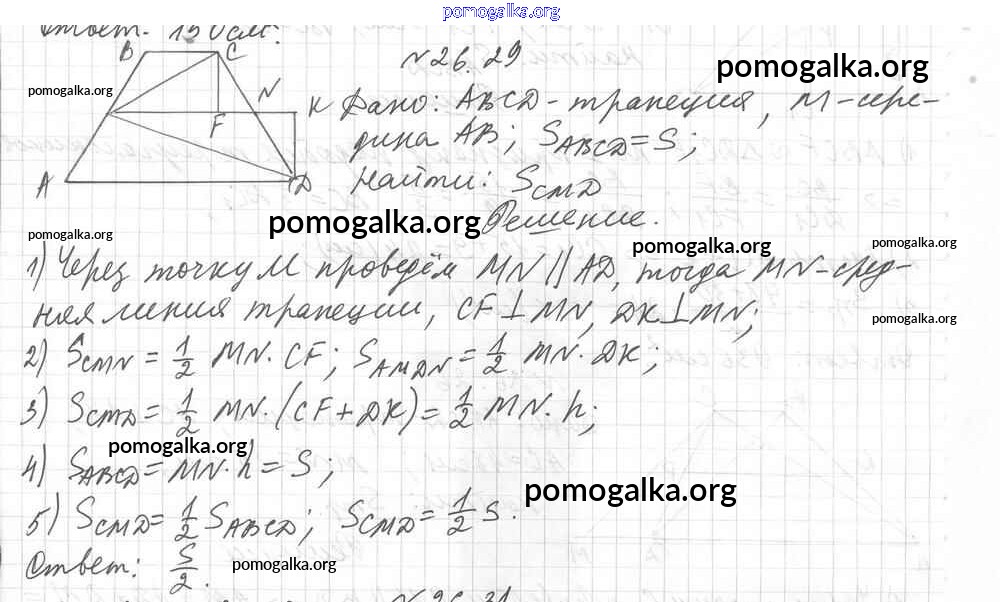 pomogalka.org
Ответ. 150 см².
B C N26.29 pomogalka.org
pomogalka.org N K Дано: ABCD-трапеция, M-сере-
F дина AB; S_ABCD=S;
A D Найти: S_CMD
pomogalka.org Решение.
pomogalka.org pomogalka.org pomogalka.org
1) Через точку M проведём MN || AD, тогда MN-сред-
няя линия трапеции, CF⊥MN, DK⊥MN;
pomogalka.org
2) S_CMN = 1/2 MN · CF; S_ΔMDN = 1/2 MN · DK;
3) S_CMD = 1/2 MN · (CF + DK) = 1/2 MN · h;
pomogalka.org
4) S_ABCD = MN · h = S;
pomogalka.org
5) S_CMD = 1/2 S_ABCD; S_CMD = 1/2 S.
Ответ: S/2. pomogalka.org